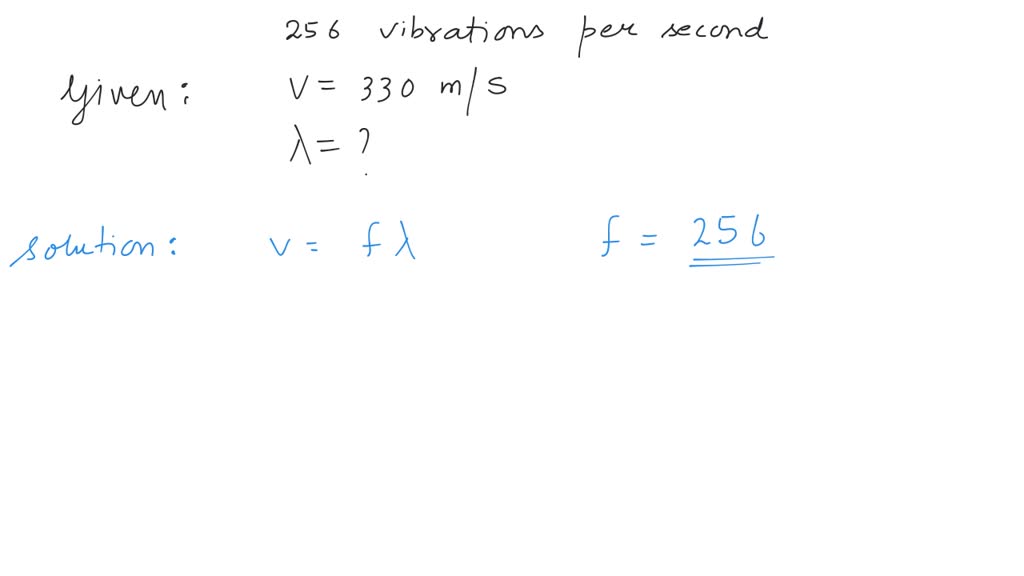 256 vibrations per second
Given: v = 330 m/s
λ = ?
solution: v = f λ f = 256